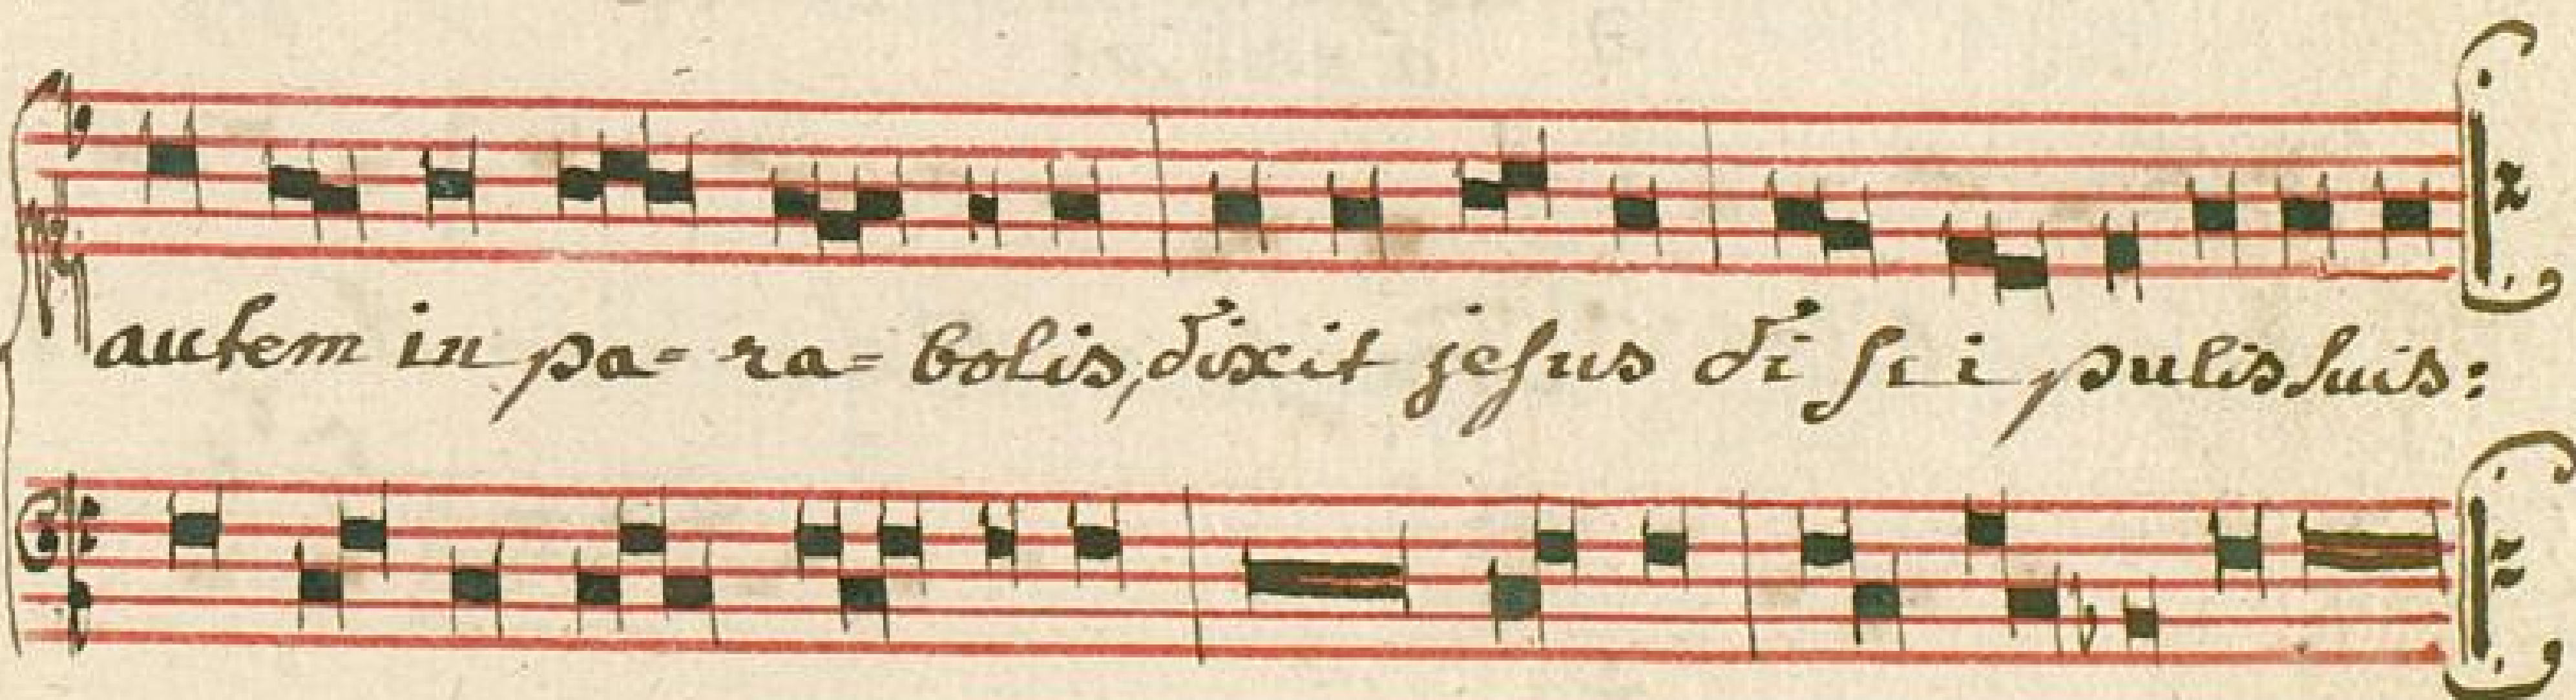 autem in pa= ra= bolis, dixit jesus di sci pulis suis: